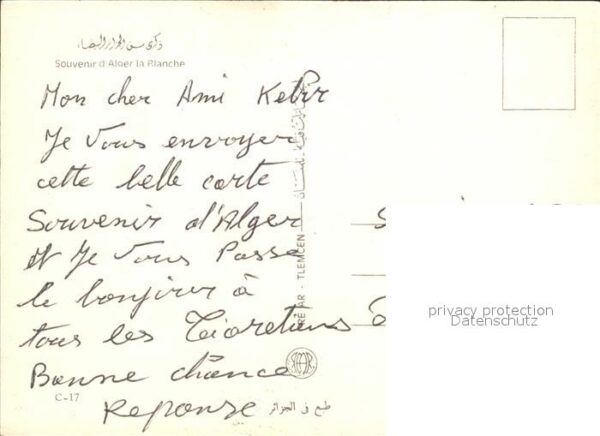 ذكرى من الجزائر البيضاء
Souvenir d'Alger la Blanche
Mon cher Ami Kebir
Je Vous envoyer
cette belle carte
Souvenir d'Alger
et Je Vous Passe
le bonjour à
tous les Tiaretiens
Bonne chance
Reponse
C-17
TLEMCEN
طبع في الجزائر
privacy protection
Datenschutz